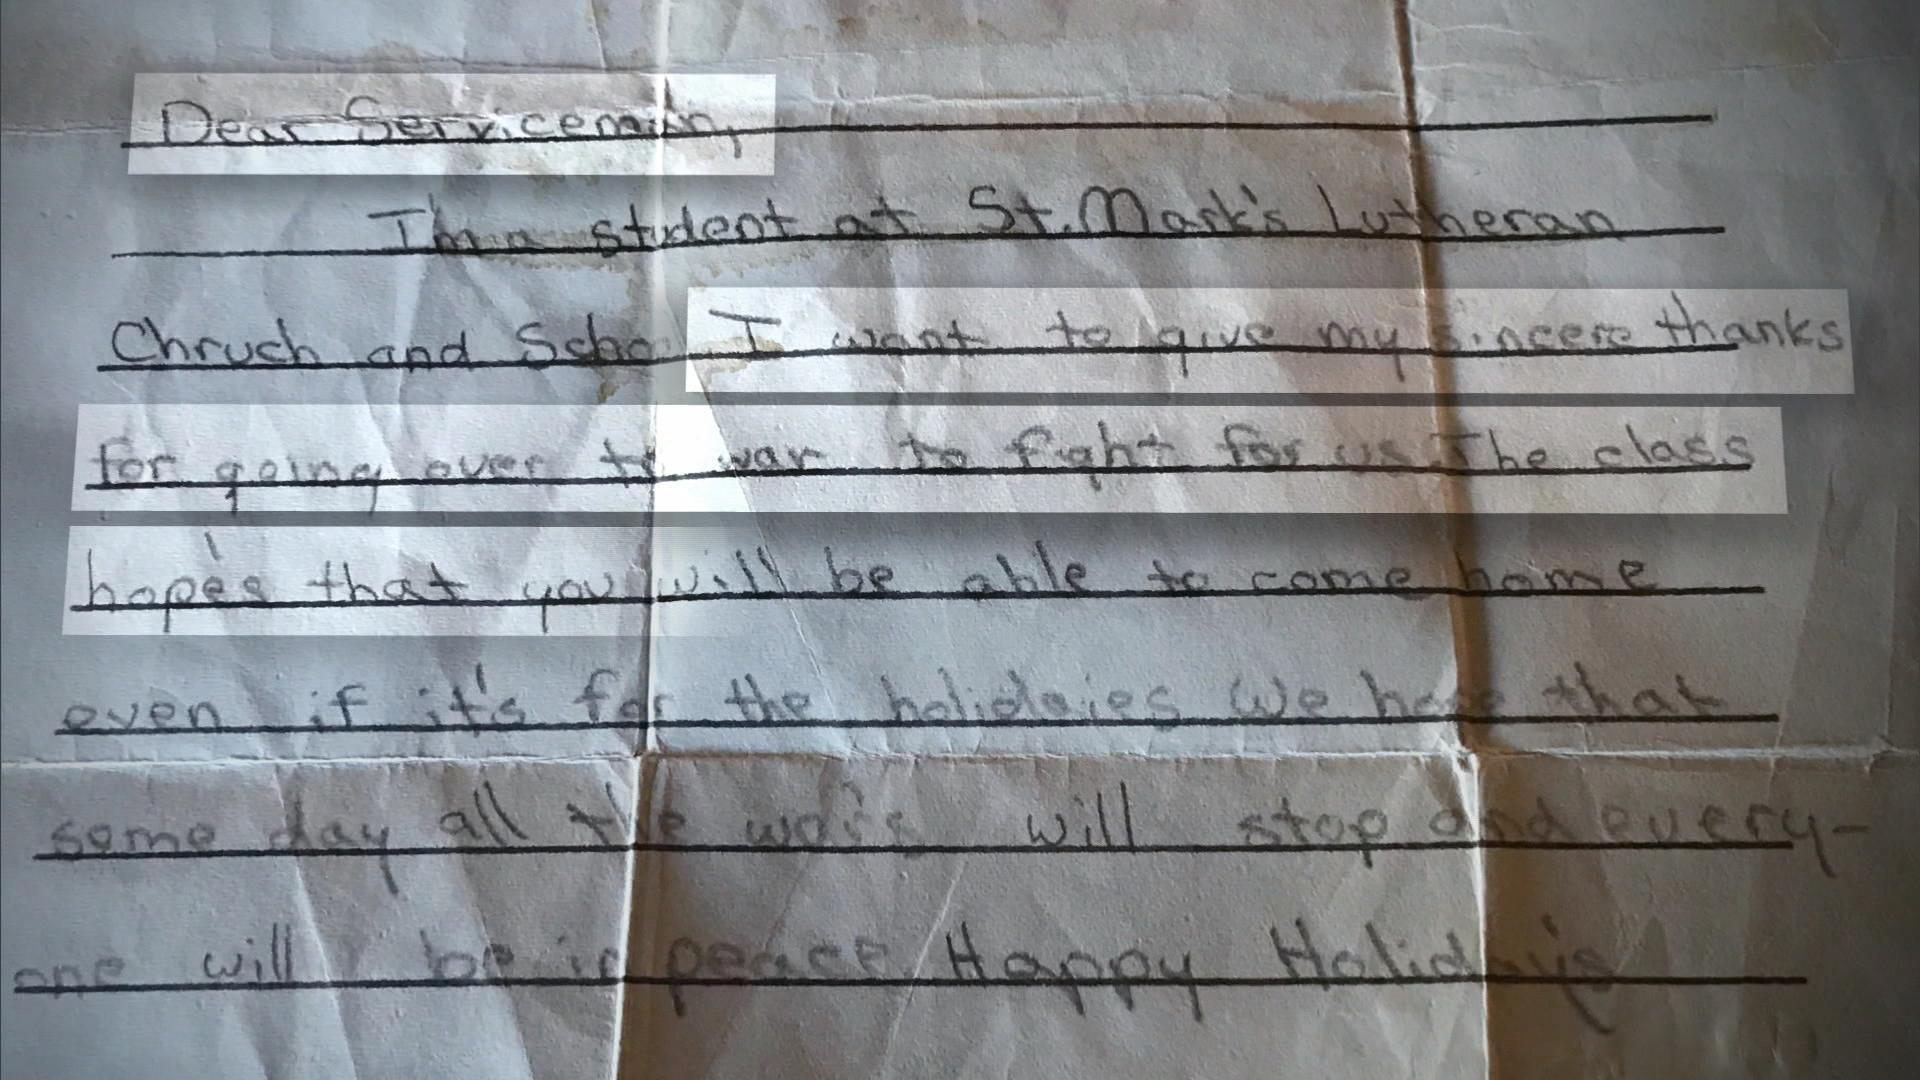 Dear Serviceman,
I'm a student at St. Mark's Lutheran
Chruch and Scho I want to give my sincere thanks
for going over to war to fight for us The class
hope's that you will be able to come home
even if it's for the holidaies We hope that
some day all the wars will stop and every-
one will be in peace. Happy Holiday's